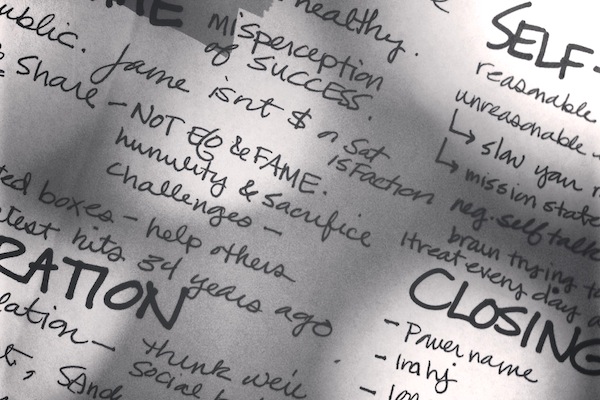 ublic.
healthy.
misperception
of SUCCESS.
& Share
fame isnt $ or Sat
isFaction
- NOT EGO & FAME.
humility & Sacrifice
challenges -
ted boxes - help others
test hits 34 years ago
RATION
lation - think well
SELF-
reasonable
unreasonable
mission state
neg. self talk
brain trying to
threat every day
CLOSING
- Power name